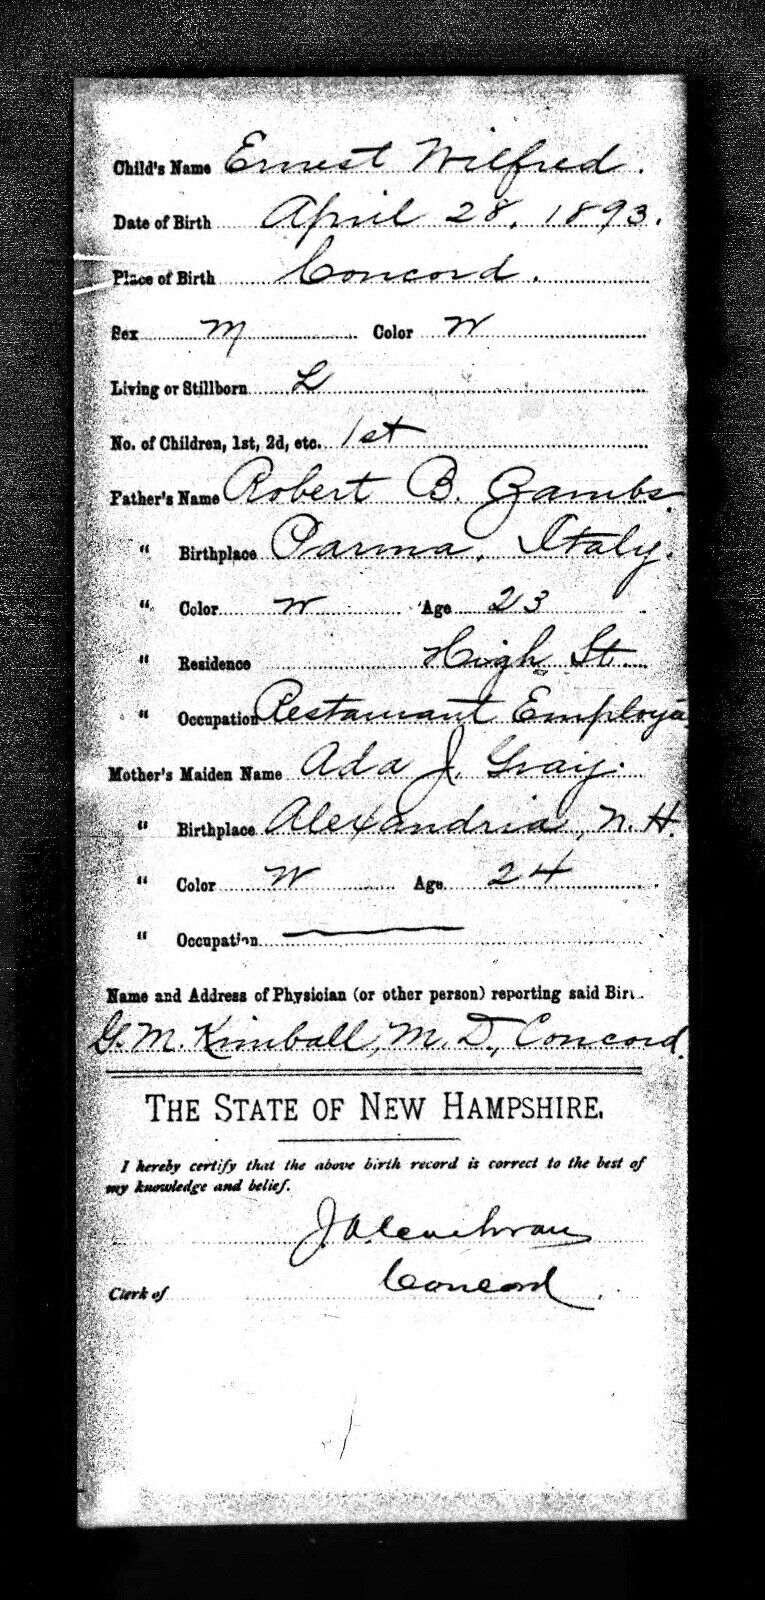 Child's Name Ernest Wilfred.
Date of Birth April 28, 1893.
Place of Birth Concord.
Sex M Color W
Living or Stillborn L
No. of Children, 1st, 2d, etc. 1st
Father's Name Robert B. Gambs
" Birthplace Parma, Italy.
" Color W Age 23
" Residence High St.
" Occupation Restaurant
Mother's Maiden Name Ada J. Gray.
" Birthplace Alexandria, N. H.
" Color W Age 24
" Occupation
Name and Address of Physician (or other person) reporting said
G. M. Kimball, M. D., Concord.
THE STATE OF NEW HAMPSHIRE.
I hereby certify that the above birth record is correct to the best of
my knowledge and belief.
Clerk of Concord.